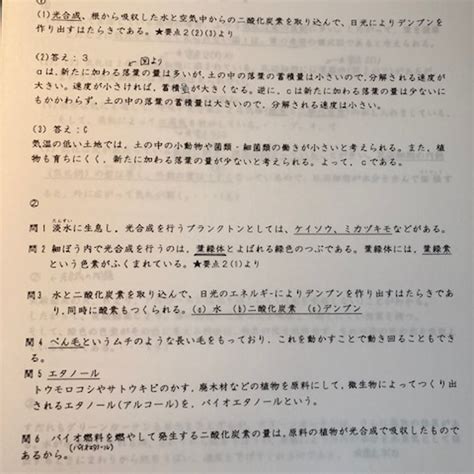 ①
(1)光合成、根から吸収した水と空気中からの二酸化炭素を取り込んで、日光によりデンプンを
作り出すはたらきである。★要点2(2)(3)より
(2)答え：3
図より
aは、新たに加わる落葉の量は多いが、土の中の落葉の蓄積量は小さいので、分解される速度が
大きい。速度が小さければ、蓄積量が大きくなる。逆に、cは新たに加わる落葉の量が少ないに
もかかわらず、土の中の落葉の蓄積量は大きいので、分解される速度は小さい。
(3)答え：C
気温の低い土地では、土の中の小動物や菌類・細菌類の働きが小さいと考えられる。また、植
物も育ちにくく、新たに加わる落葉の量が少ないと考えられる。よって、cである。
②
たんすい
問1 淡水に生息し、光合成を行うプランクトンとしては、ケイソウ、ミカヅキモなどがある。
問2 細ぼう内で光合成を行うのは、葉緑体とよばれる緑色のつぶである。葉緑体には、葉緑素
という色素がふくまれている。★要点2(1)より
問3 水と二酸化炭素を取り込んで、日光のエネルギーによりデンプンを作り出すはたらきであ
り、同時に酸素もつくられる。(a)水 (b)二酸化炭素 (c)デンプン
問4 べん毛というムチのような長い毛をもっており、これを動かすことで動き回ることもでき
る。
問5 エタノール
トウモロコシやサトウキビのかす、廃木材などの植物を原料にして、微生物によってつくり出
されるエタノール(アルコール)を、バイオエタノールという。
問6 バイオ燃料を燃やして発生する二酸化炭素の量は、原料の植物が光合成で吸収したもので
(バイオエタノール)
あるから。